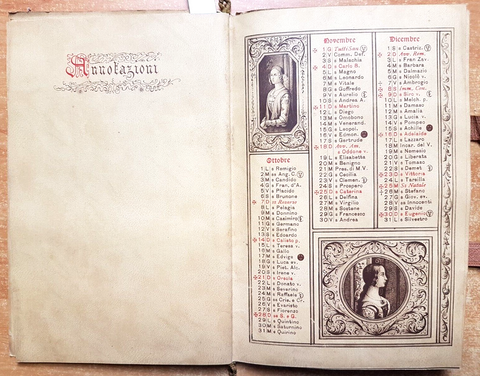 Annotazioni
Ottobre
1 L s Remigio
2 M ss Ang. C.
3 M s Candido
4 G s Fran. d'A.
5 V s Placido
6 S s Brunone
7 D ss Rosario
8 L s Pelagia
9 M s Donnino
10 M s Casimiro
11 G s Germano
12 V s Serafino
13 S s Edoardo
14 D s Calisto p.
15 L s Teresa v.
16 M s Gallo
17 M s Edvige
18 G s Luca ev.
19 V s Piet. Alc.
20 S s Irene v.
21 D s Orsola
22 L s Donato v.
23 M s Severino
24 M s Raffaele
25 G ss Cria. e Cr.
26 V s Evaristo
27 S s Fiorenzo
28 D ss S. e G.
29 L s Quintino
30 M s Saturnino
31 M s Quirino
Novembre
1 G Tutti San
2 V Comm. Def.
3 S s Malachia
4 D s Carlo B.
5 L s Magno
6 M s Leonardo
8 G s Goffredo
9 V s Aurelio
10 S s Andrea A.
11 D s Martino
12 L s Diego
13 M s Omobono
14 M s Venerand.
15 G s Leopol.
17 S s Geltrude
18 D Avv. Am.
s Oddone v.
19 L s Elisabetta
20 M s Benigno
21 M Pres. di M.V.
22 G s Cecilia
23 V s Clemen.
24 S s Prospero
25 D s Caterina
26 L s Delfina
27 M s Virgilio
28 M s Sostene
29 G s Francesco
30 V s Andrea
Dicembre
1 S s Castric.
2 D Av. Rom.
3 L s Fran. Zav.
4 M s Barbara
5 M s Dalmazio
6 G s Nicolò v.
7 V s Ambrogio
8 S Imm. Con.
9 D s Siro v.
10 L s Melch. p.
11 M s Damaso
12 M s Amalia
13 G s Lucia v.
14 V s Pompeo
15 S s Achille
16 D s Adelaide
17 L s Lazzaro
18 M Incar. del V.
19 M s Nemesio
20 G s Liberata
21 V s Tomaso
22 S s Demet.
23 D s Vittoria
24 L s Tarsilla
25 M Ss Natale
26 M s Stefano
27 G s Giov. ev.
28 V ss Innocenti
29 S s Davide
30 D s Eugenio
31 L s Silvestro